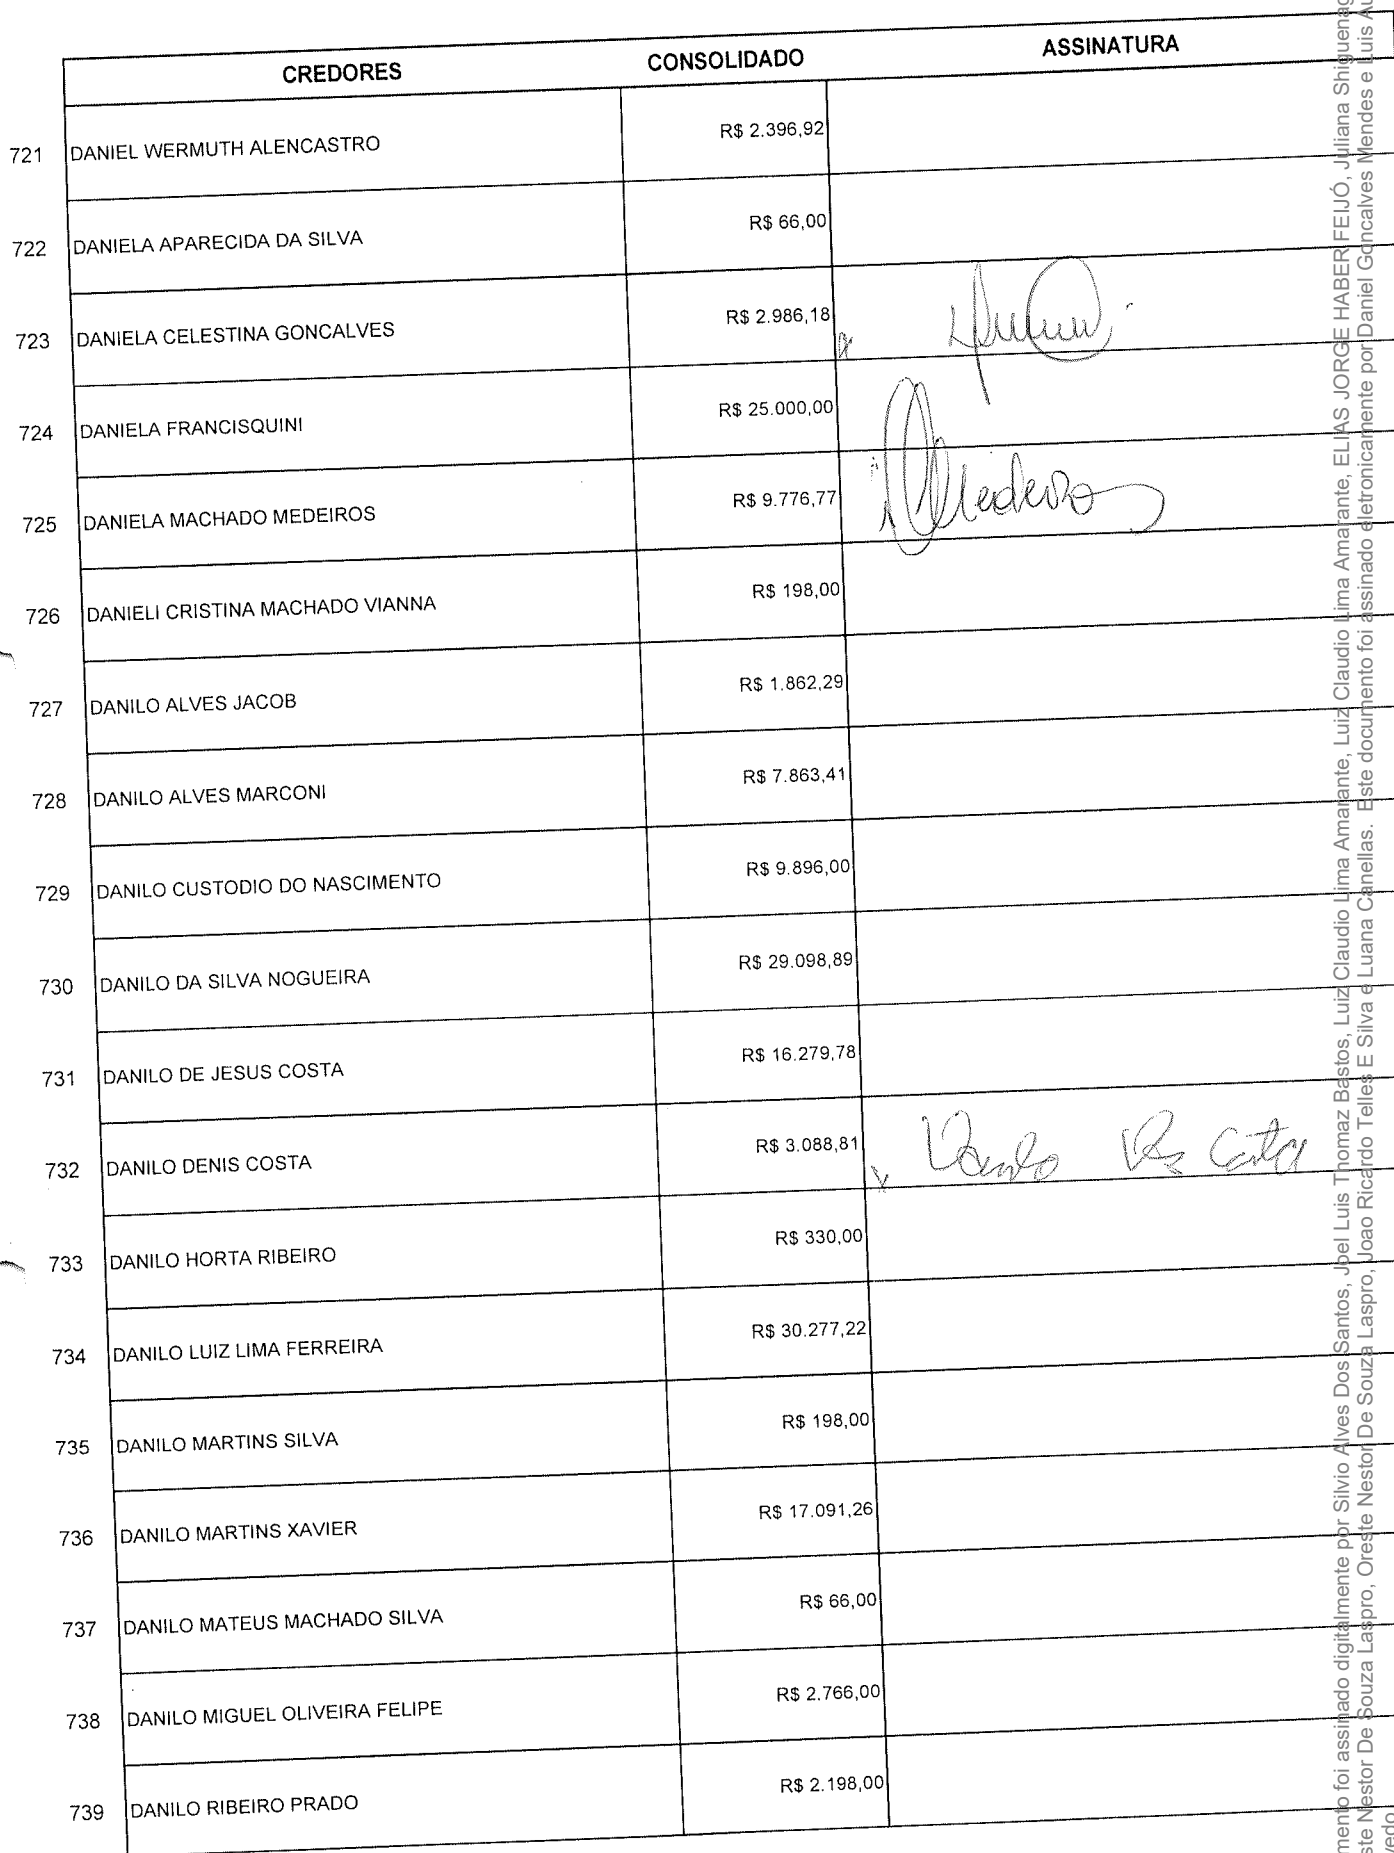 CREDORES CONSOLIDADO ASSINATURA
721 DANIEL WERMUTH ALENCASTRO R$ 2.396,92
722 DANIELA APARECIDA DA SILVA R$ 66,00
723 DANIELA CELESTINA GONCALVES R$ 2.986,18 x
724 DANIELA FRANCISQUINI R$ 25.000,00
725 DANIELA MACHADO MEDEIROS R$ 9.776,77 Medeiros
726 DANIELI CRISTINA MACHADO VIANNA R$ 198,00
727 DANILO ALVES JACOB R$ 1.862,29
728 DANILO ALVES MARCONI R$ 7.863,41
729 DANILO CUSTODIO DO NASCIMENTO R$ 9.896,00
730 DANILO DA SILVA NOGUEIRA R$ 29.098,89
731 DANILO DE JESUS COSTA R$ 16.279,78
732 DANILO DENIS COSTA R$ 3.088,81 x Danilo Costa
733 DANILO HORTA RIBEIRO R$ 330,00
734 DANILO LUIZ LIMA FERREIRA R$ 30.277,22
735 DANILO MARTINS SILVA R$ 198,00
736 DANILO MARTINS XAVIER R$ 17.091,26
737 DANILO MATEUS MACHADO SILVA R$ 66,00
738 DANILO MIGUEL OLIVEIRA FELIPE R$ 2.766,00
739 DANILO RIBEIRO PRADO R$ 2.198,00
mento foi assinado digitalmente por Silvio Alves Dos Santos, Joel Luis Thomaz Bastos, Luiz Claudio Lima Amarante, Luiz Claudio Lima Amarante, ELIAS JORGE HABER FEIJÓ, Juliana Shiguenag
ste Nestor De Souza Laspro, Oreste Nestor De Souza Laspro, Joao Ricardo Telles E Silva e Luana Canellas. Este documento foi assinado eletronicamente por Daniel Goncalves Mendes e Luis Au
vedo